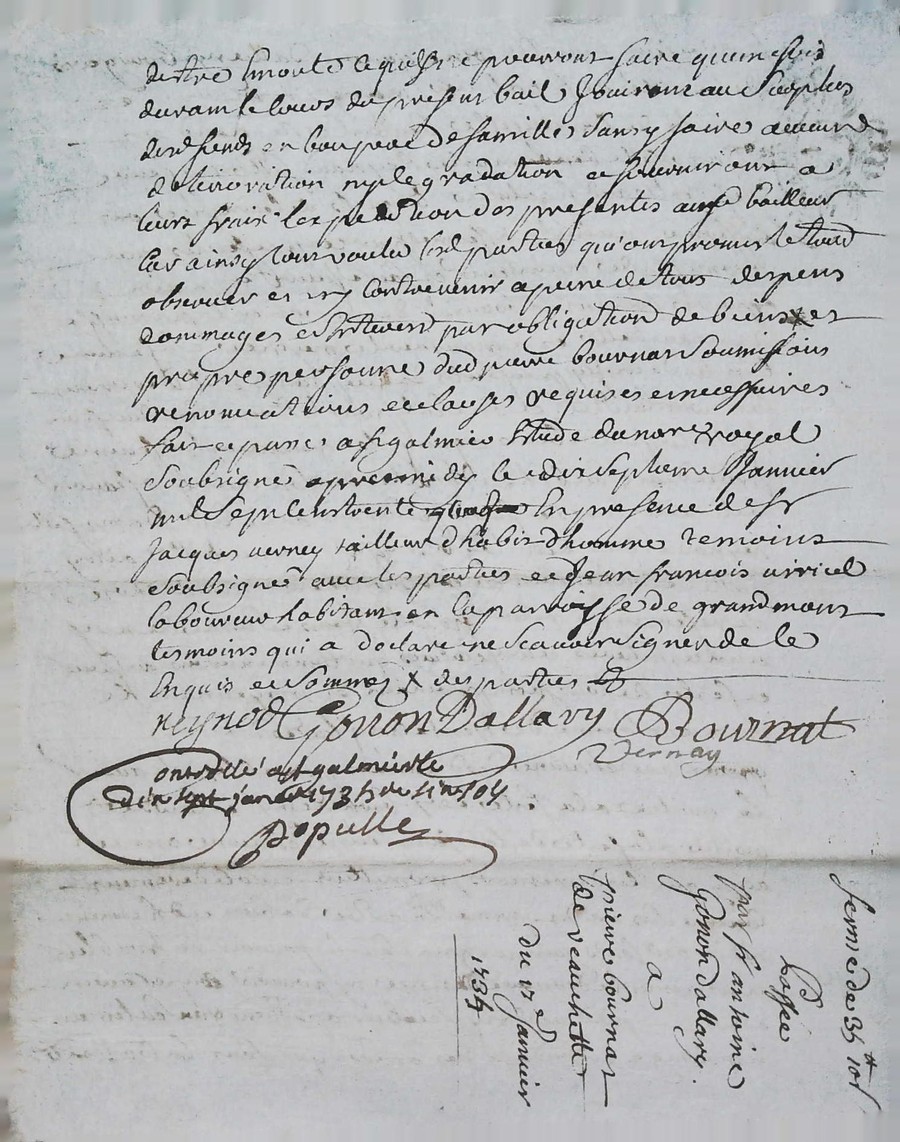 destre
pourront faire qu'une fois
durant le cours du present bail Jouiront au Surplus
desd fonds en bon pere de famille Sans y faire aucune
deterioration ny degradation et fourniront a
leurs frais expedition des presentes aud bailleur
Car ainsy l'ont voulu lesd parties qu'ont promis le tout
observer et ny contrevenir a peine de tous despens
dommages et Interests par obligation de biens x et
propre personne dud pierre bournat Soumissions
renonciations et clauses requises et necessaires
fait et passé a St galmier Etude du nore royal
Soubsigné apres midy le dix Septieme Janvier
mil Sept cent trente En presence de Sr
Jacques verney tailleur d'habit d'homme temoins
Soubsigné avec les parties et Jean francois
laboureur habitant en la parroisse de grandmont
tesmoins qui a declaré ne Scavoir Signer de le
Enquis et Sommé x des parties
Reynod Gonon Dallary Bournat
Vernay
Controllé a St galmier le
dix sept janer 173
Populle
ferme de 35 10s
Passée
par Sr antoine
Gonon dallary.
a
pierre bournat
de veauchette
du 17e Janvier
1734